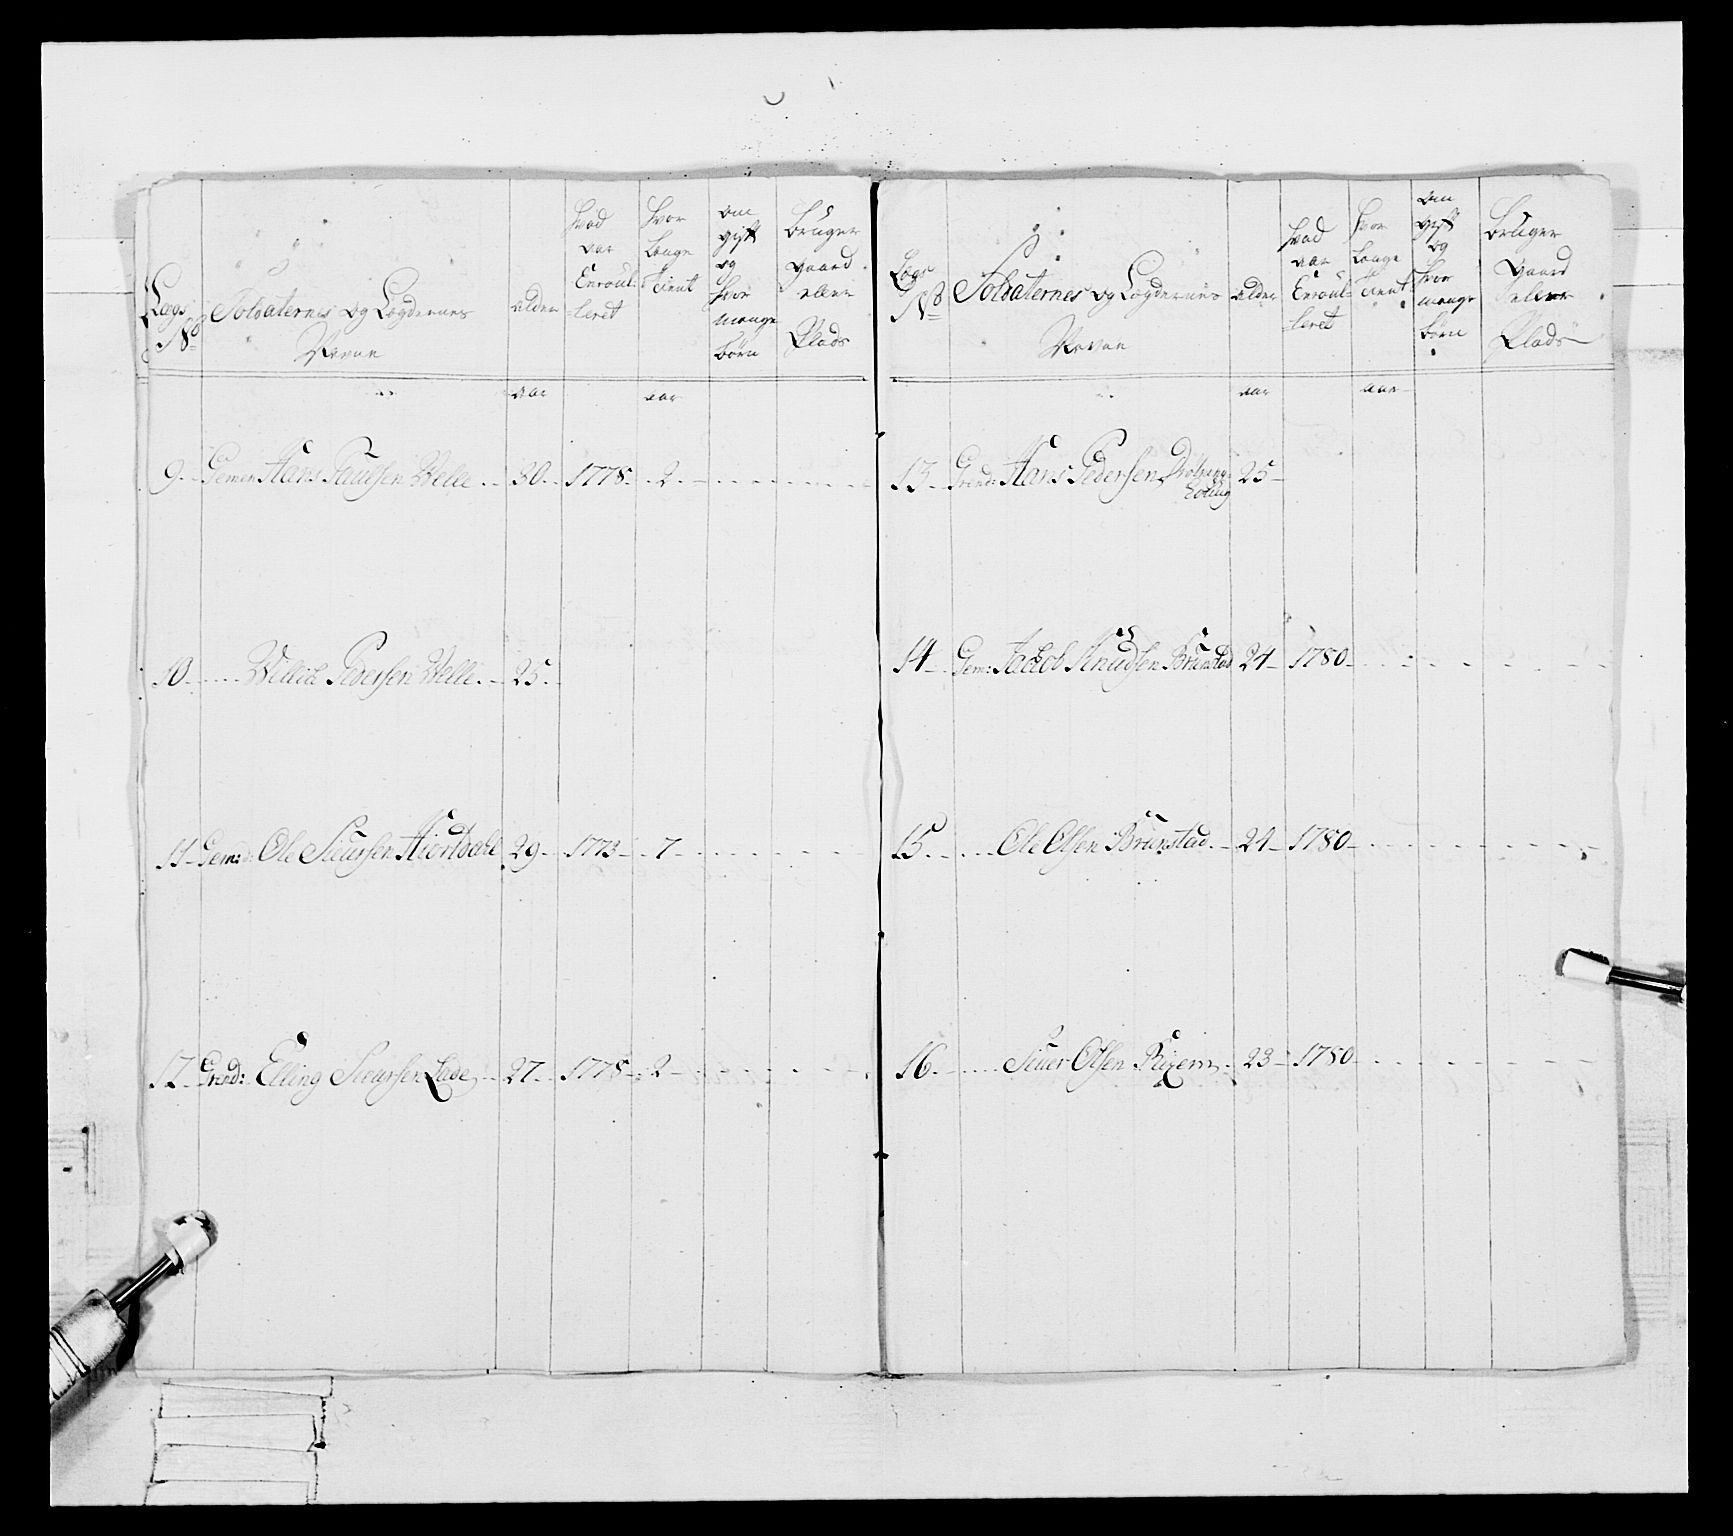 Lægs No
Soldaternes og Lægdernes Navne
alder
hvad aar Enroul-leret
hvor Længe Tient
om gift og hvor mange børn
bruger gaard eller Plads
aar
aar
9. Gemen Hans Paulsen Welle 30. 1778. 2.
10. Pedersen Welle. 25.
11 Gem: Ole Siursen Hiortdahl 29. 1773 7
12 Grend: Elling Siursen Lade 27. 1778 2
Lægs No
Soldaternes og Lægdernes Navne
alder
hvad aar Enroul-leret
hvor Længe Tient
om gift og hvor mange børn
bruger gaard eller Plads
aar
aar
13 Grend: Hans Pedersen 25
14 Gem: Jacob Knudsen Brunstad 24 1780
15 Ole Olsen Brunstad 24 1780
16. Siuer Olsen 23 1780